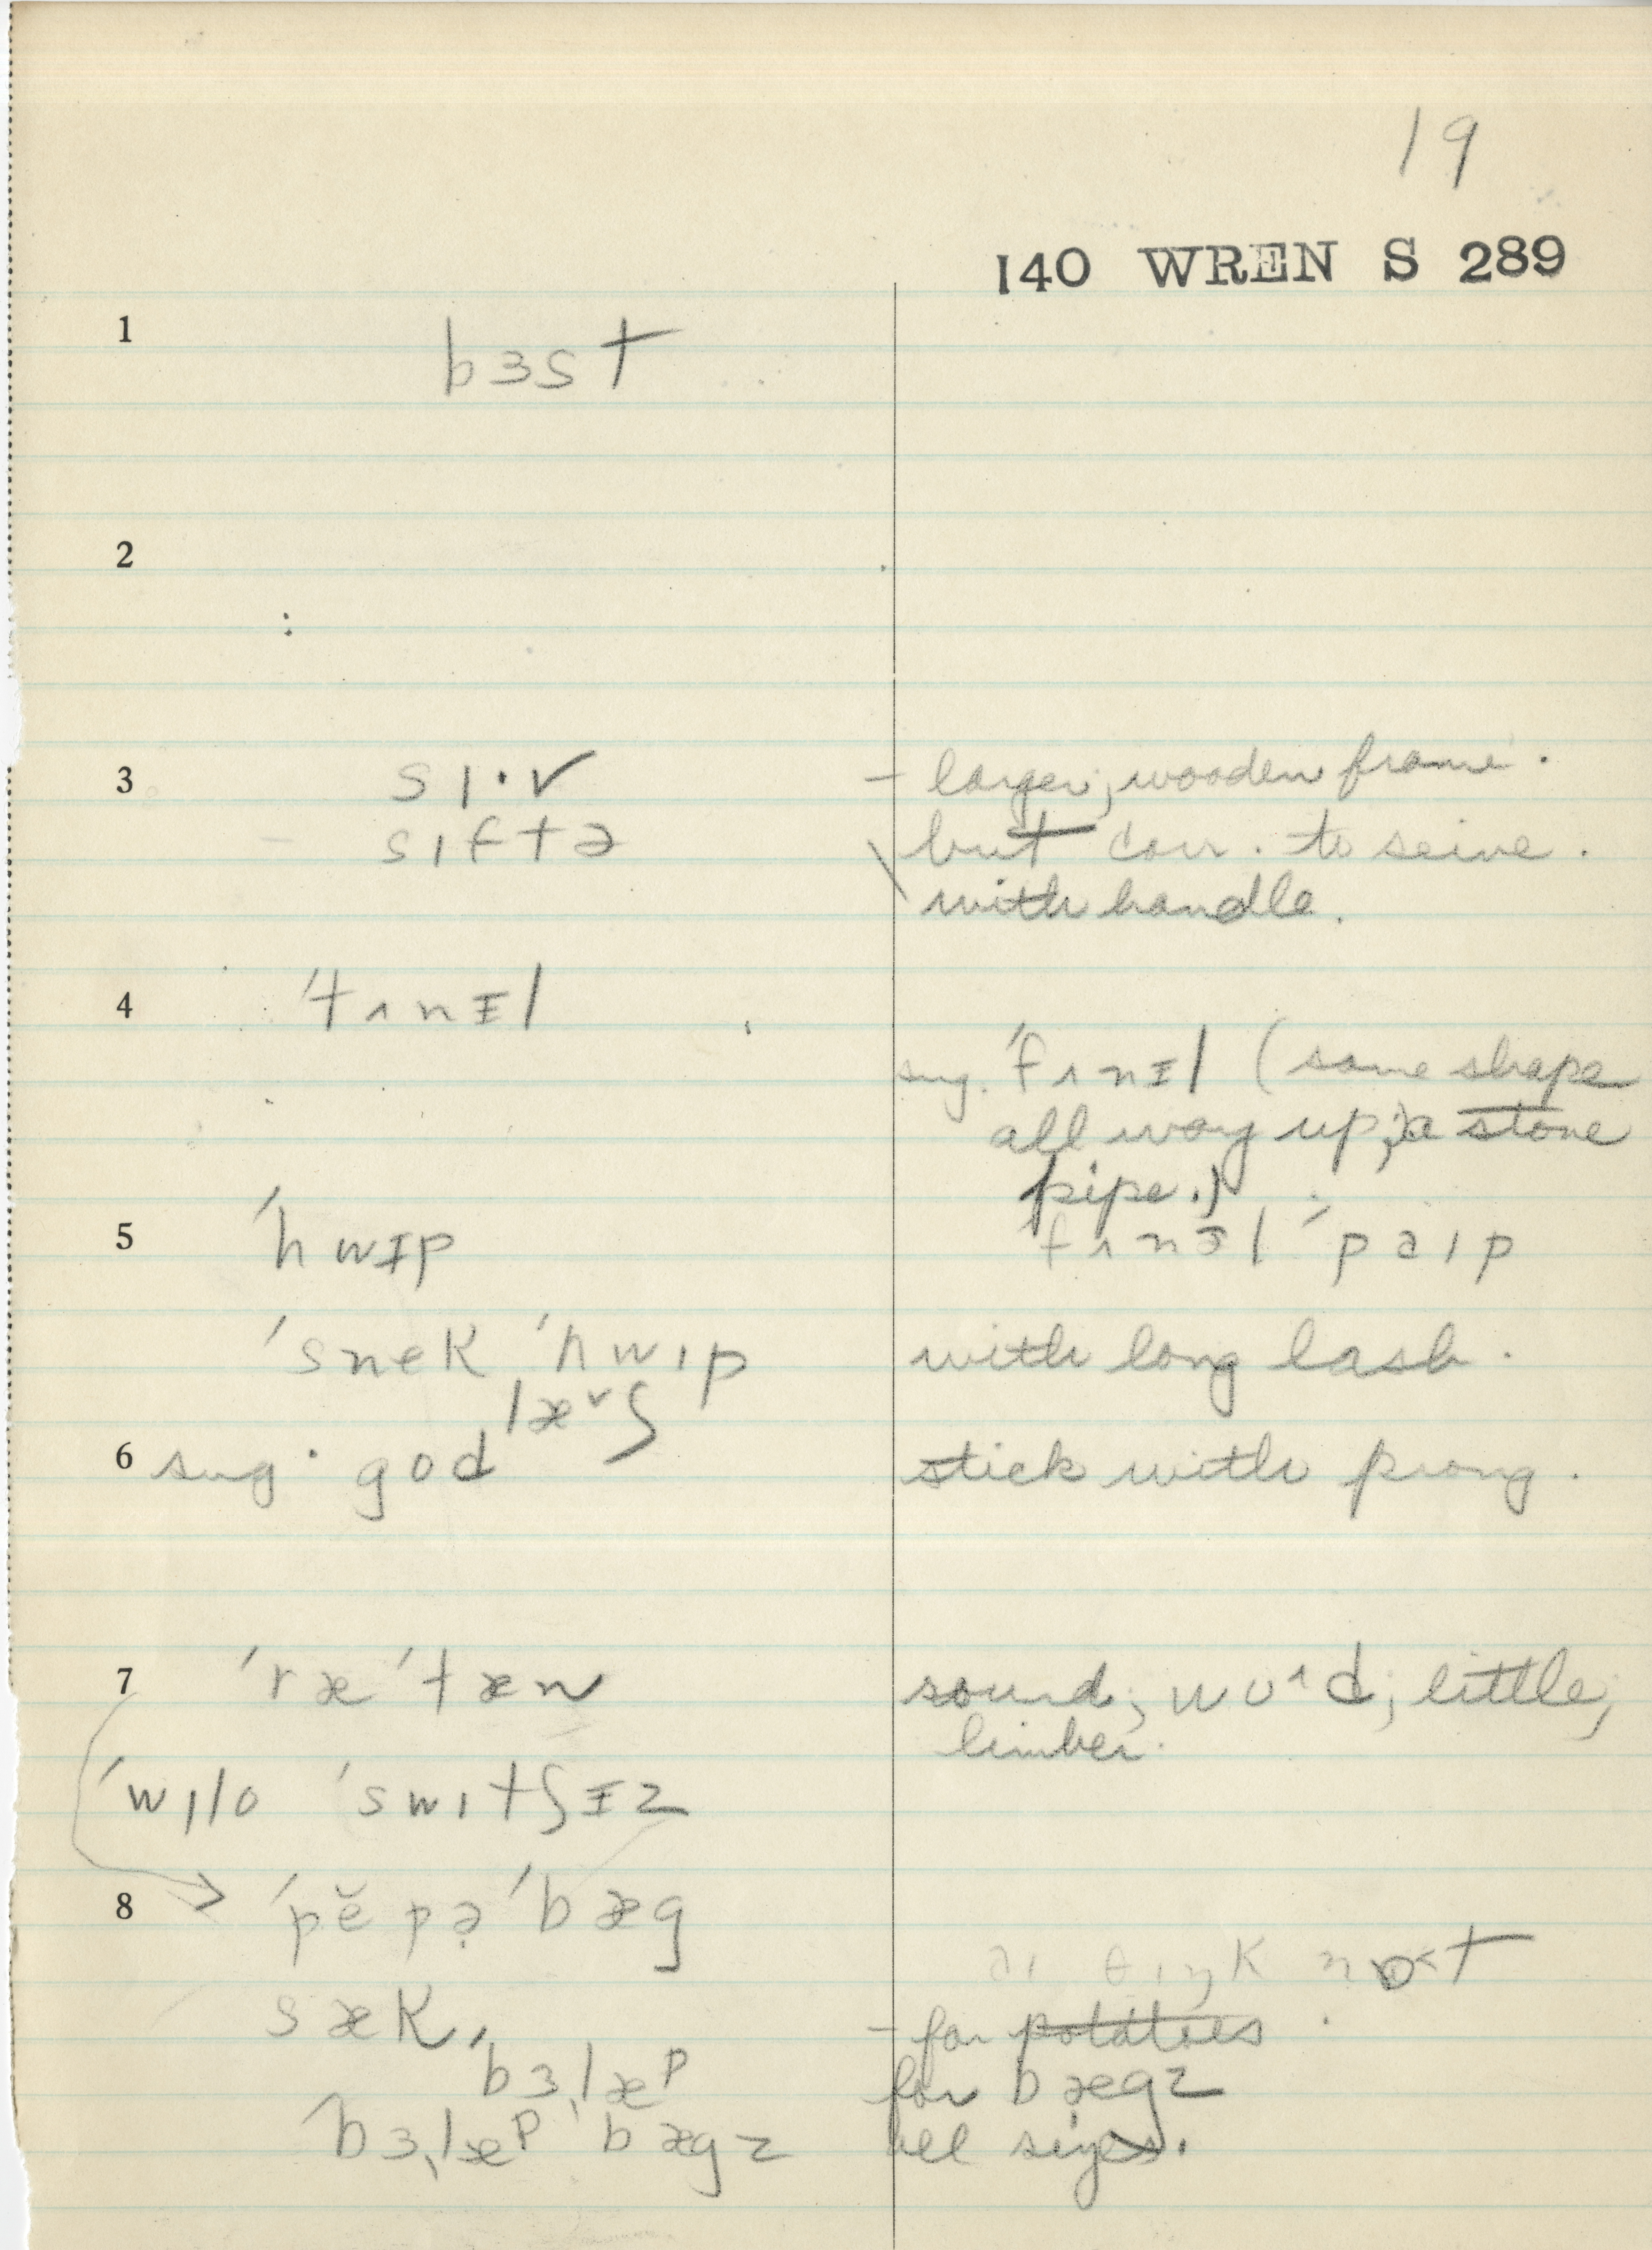 19
140 WREN S 289
1 bɜst
2
3 sɪ·v – larger; wooden frame.
sɪftə but corr. to seive.
with handle.
4 ˈtʌnɪl
sug. ˈfʌnɪl (same shape
all way up; a stone
pipe.)
5 ˈhwɪp fʌnɜl ˈpaɪp
ˈsnek ˈhwɪp with long lash.
læ˅ʃ
6 sug. god stick with prong.
7 ˈræˈtæn sound; wʊ^d; little;
limber.
ˈwɪlo ˈswɪtʃɪz
8 ˈpĕpə̣ ˈbæg
aɪ θɪŋk nɒ<t
sæk, – for potatoes.
bɜˌlæᵖ for bægz
ˈbɜˌlæᵖ ˈbægz all sizes.